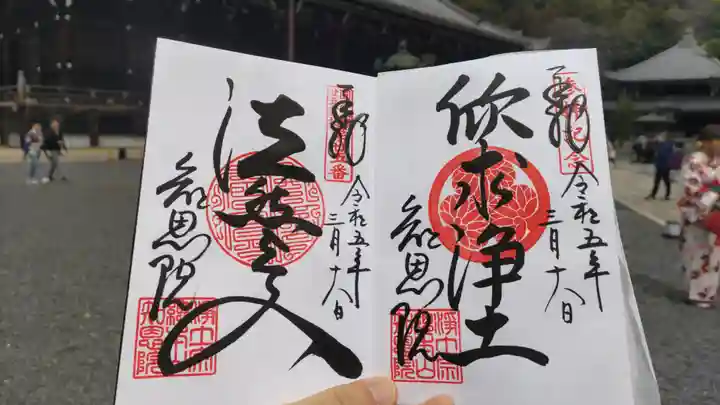 参拝記念
奉拝
欣求浄土
令和五年
三月十八日
知恩院
奉拝
法然上人
令和五年
三月十八日
知恩院